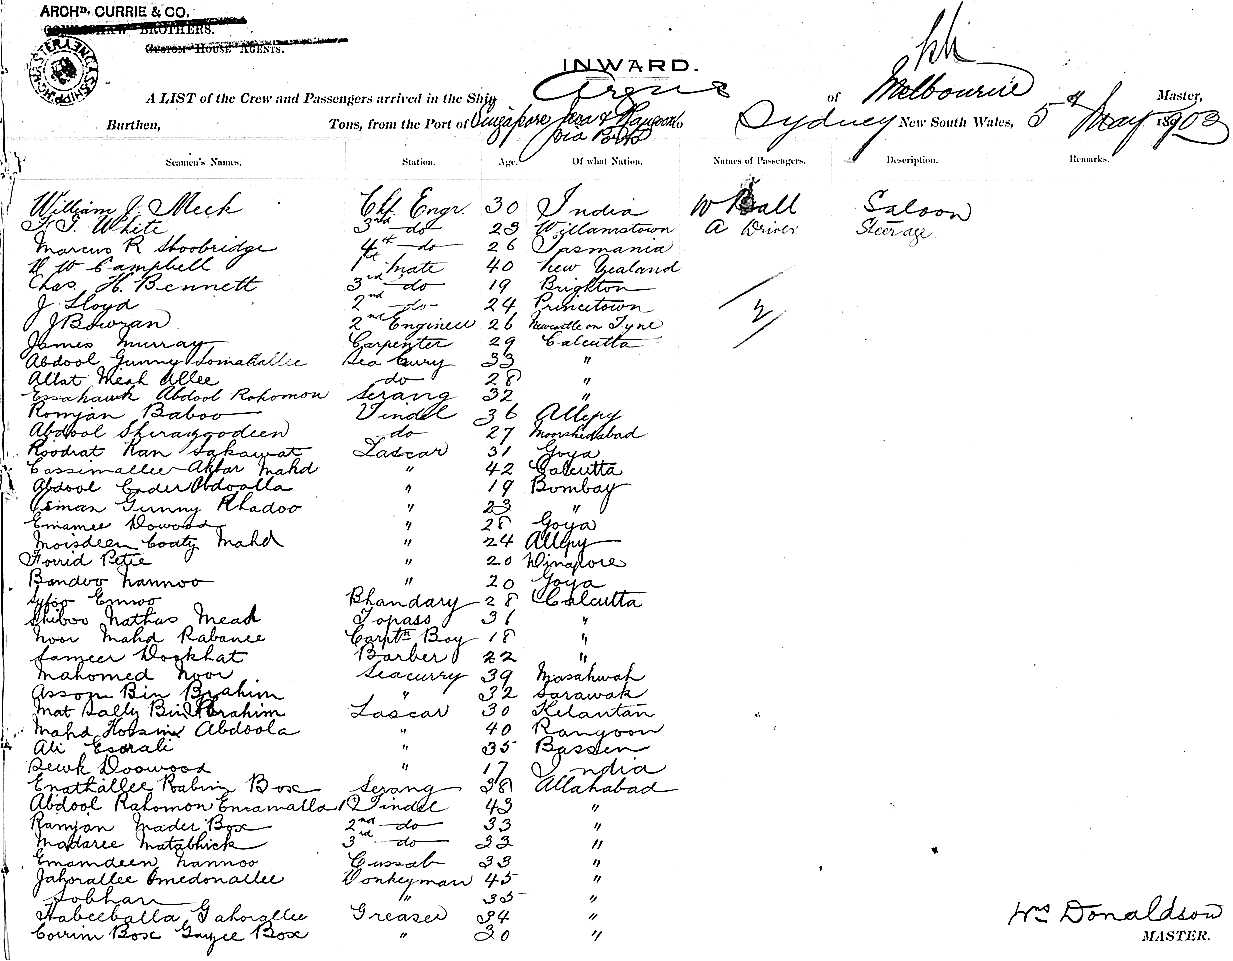 ARCHD. CURRIE & CO.
BROTHERS.
CUSTOM HOUSE AGENTS.
INWARD.
A LIST of the Crew and Passengers arrived in the Ship Argus of Melbourne Master,
Burthen, Tons, from the Port of Singapore Java & Rangoon to Sydney New South Wales, 5th May 1903
via
Seamen's Names. Station. Age. Of what Nation. Names of Passengers. Description. Remarks.
William J. Meek Chf Engr. 30 India W Ball Saloon
T. White 3rd do 23 Williamstown A Driver Steerage
Marcus R Shoobridge 4th do 26 Tasmania
W Campbell 1st Mate 40 New Zealand
Chas. H. Bennett 3rd do 19 Brighton
J Lloyd 2nd do 24 Princetown
J Bowran 2nd Engineer 26 Newcastle on Tyne
James Murray Carpenter 29 Calcutta
Abdool Gunny Somakallee Sea Curry 33 "
Allat Meah Allee do 28 "
Essahawk Abdool Rohomon Serang 32 "
Romjan Baboo Tindel 36 Allepy
Abdool Sheraggodeen do 27 Moorshedabad
Roodrat Kan Sakawat Lascar 31 Goya
Cassimallee Akbar Mahd " 42 Calcutta
Abdool Cader Abdoalla " 19 Bombay
Osman Gunny Khadoo " 23 "
Emamee Dowood " 28 Goya
Moisdeen Coaty Mahd " 24 Allepy
Forrid Petie " 20 Dinapore
Bandoo Nannoo " 20 Goya
Emoo Bhandary 28 Calcutta
Shiboo Nathas Meah Topass 31 "
Noor Mahd Rabanee Carptn Boy 18 "
Sameer Dookhat Barber 22 "
Mahomed Noor Seacurry 39 Masahwah
Assom Bin Brahim " 32 Sarawak
Mat Sally Bin Ibrahim Lascar 30 Kelantan
Mahd Hossin Abdoola " 40 Rangoon
Ali Esorali " 35 Bassen
Sewk Doowood " 17 India
Enathallee Rabim Box Serang 38 Allahabad
Abdool Rahomon Enramalla Tindel 43 "
Ramjan Mader Box 2nd do 33 "
Madaree Matabhick 3rd do 33 "
Emamdeen Nannoo Cussab 33 "
Jahorallee Omedonallee Donkeyman 45 "
Sobhan " 35 "
Habeeballa Gahorallee Greaser 34 "
Corrim Box Gayee Box " 30 "
Wm Donaldson
MASTER.